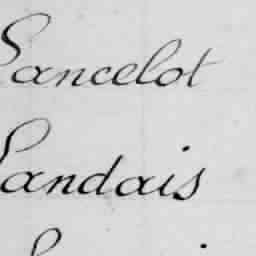 Lancelot
Landais